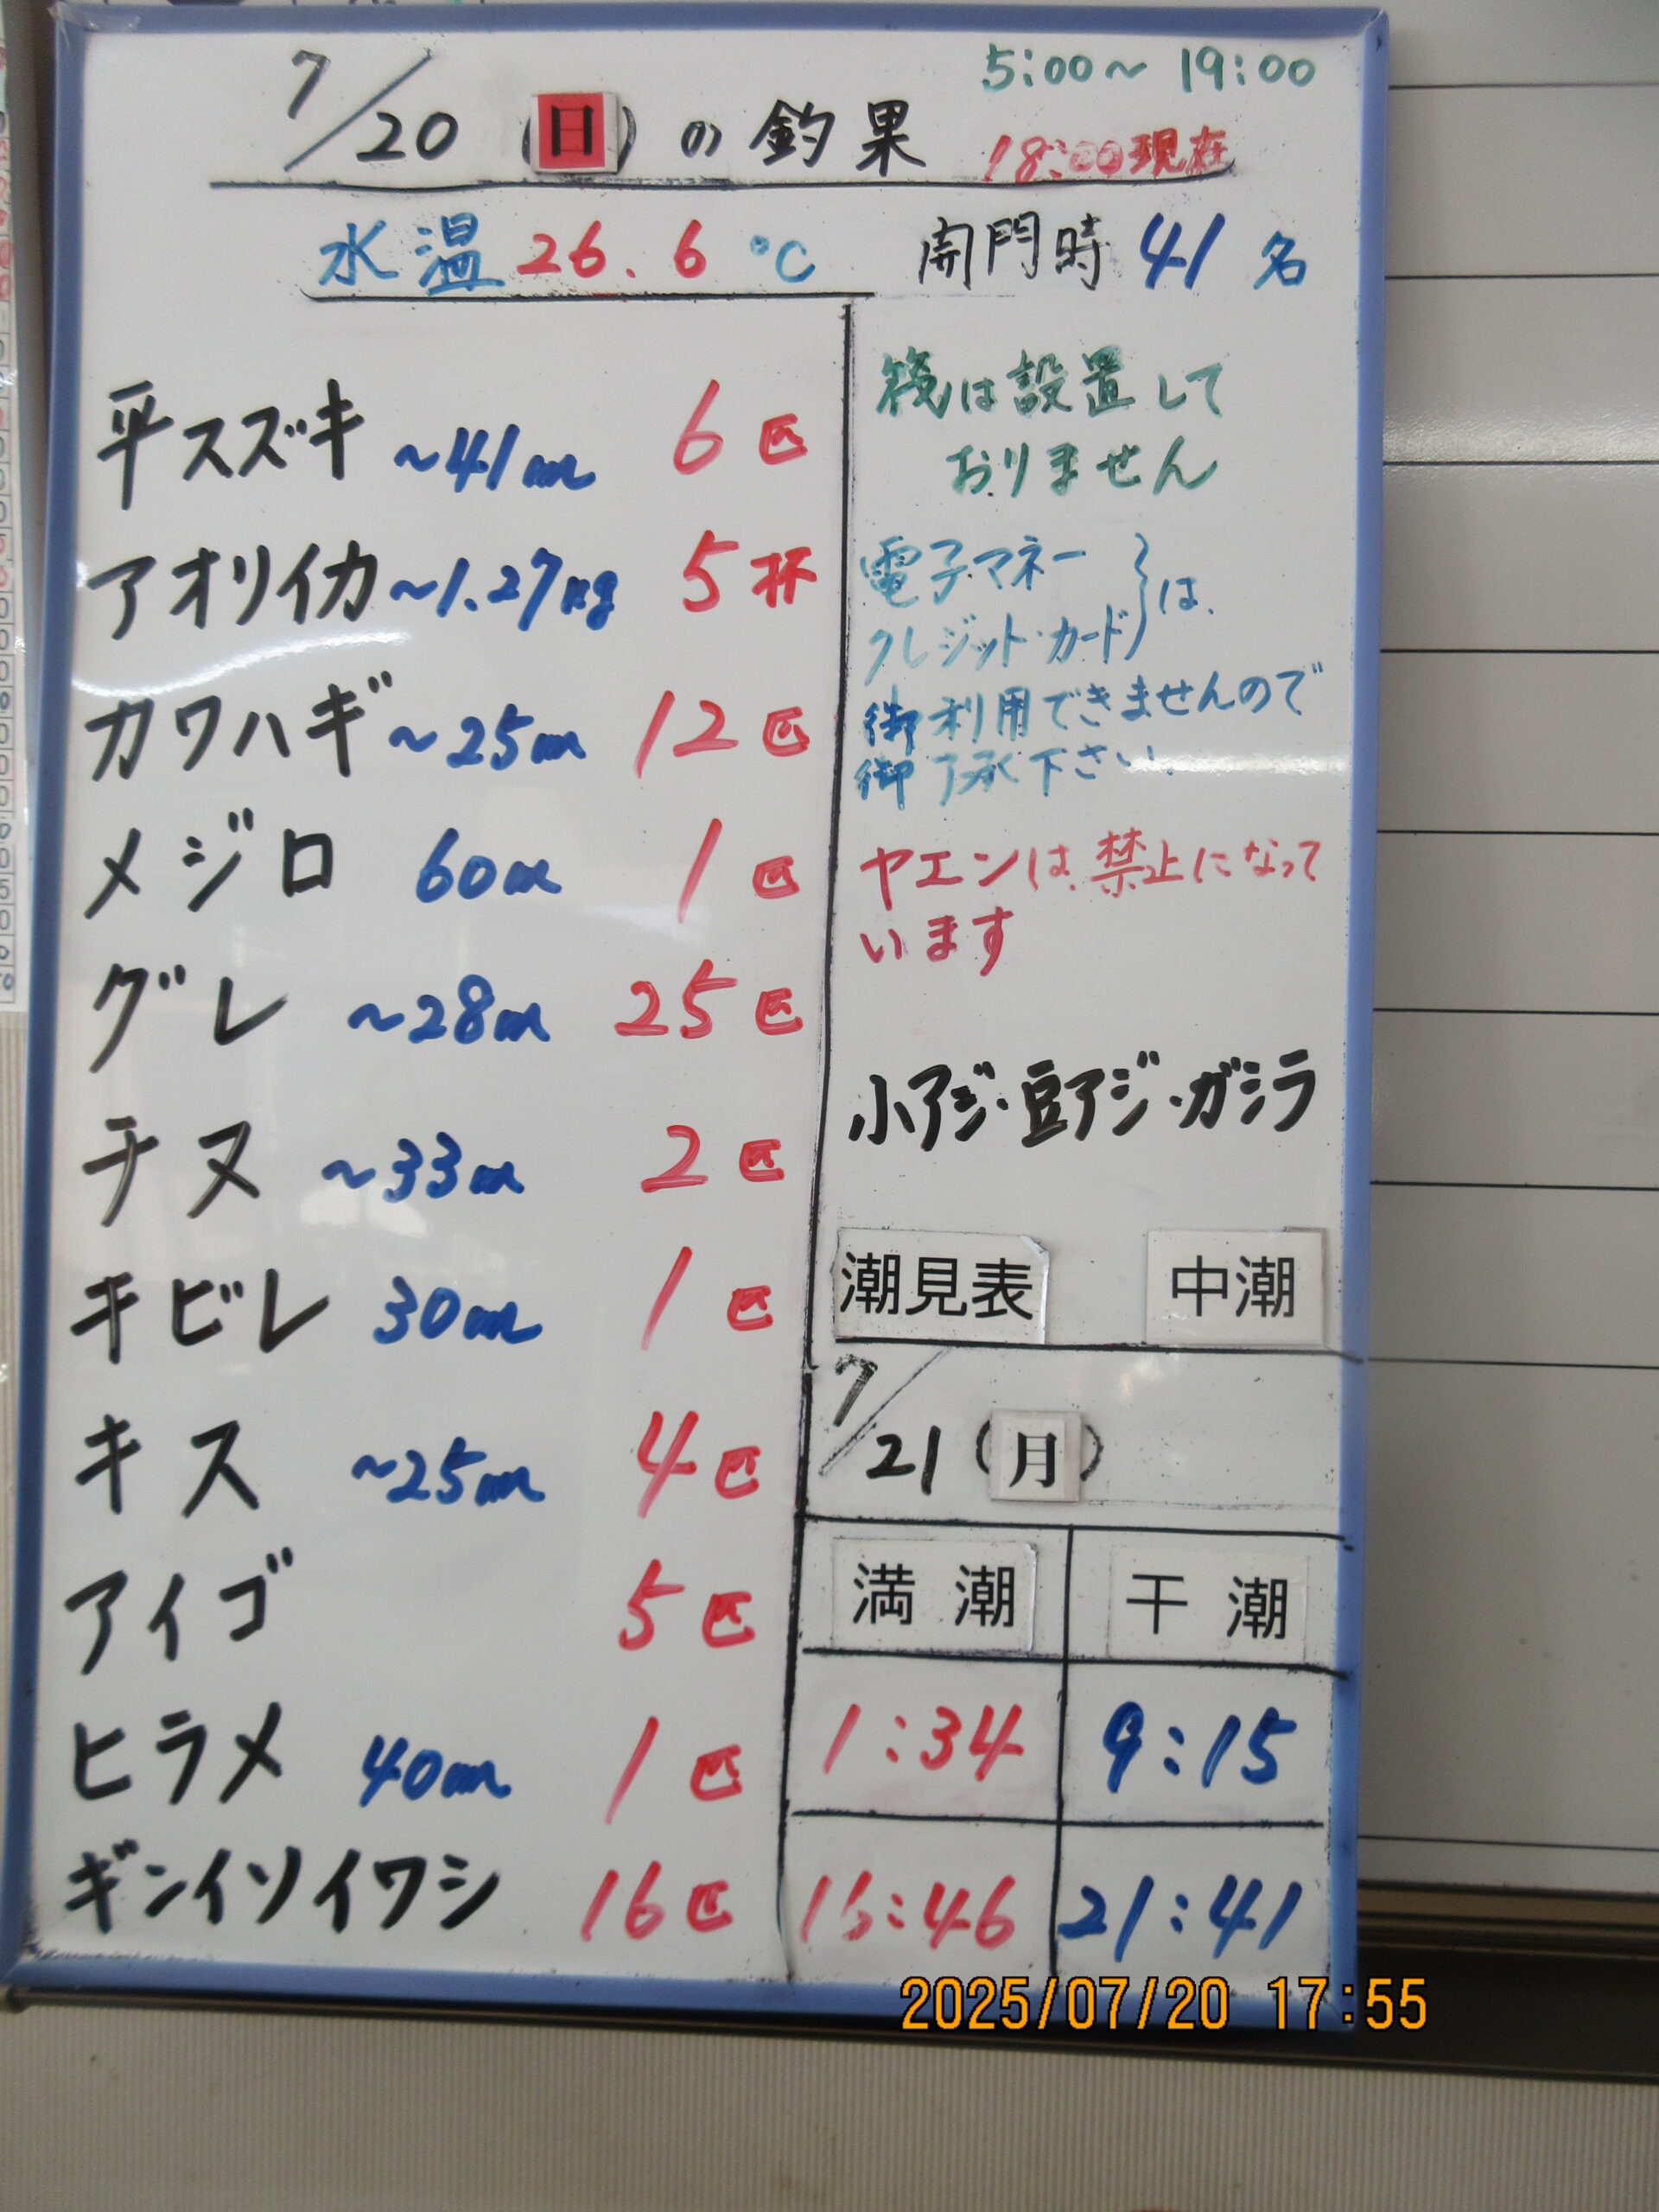 7/20 (日) の釣果
5:00～19:00
18:00現在
水温 26.6 ℃
開門時 41 名
平スズキ ～41㎝ 6匹
アオリイカ ～1.27kg 5杯
カワハギ ～25㎝ 12匹
メジロ 60㎝ 1匹
グレ ～28㎝ 25匹
チヌ ～33㎝ 2匹
キビレ 30㎝ 1匹
キス ～25㎝ 4匹
アイゴ 5匹
ヒラメ 40㎝ 1匹
ギンイソイワシ 16匹
筏は設置して
おりません
電子マネー
クレジット・カード}は、
御利用できませんので
御了承下さい。
ヤエンは禁止になって
います
小アジ・豆アジ・ガシラ
潮見表 中潮
7/21 (月)
満潮 干潮
1:34 9:15
:46 21:41
2025/07/20 17:55